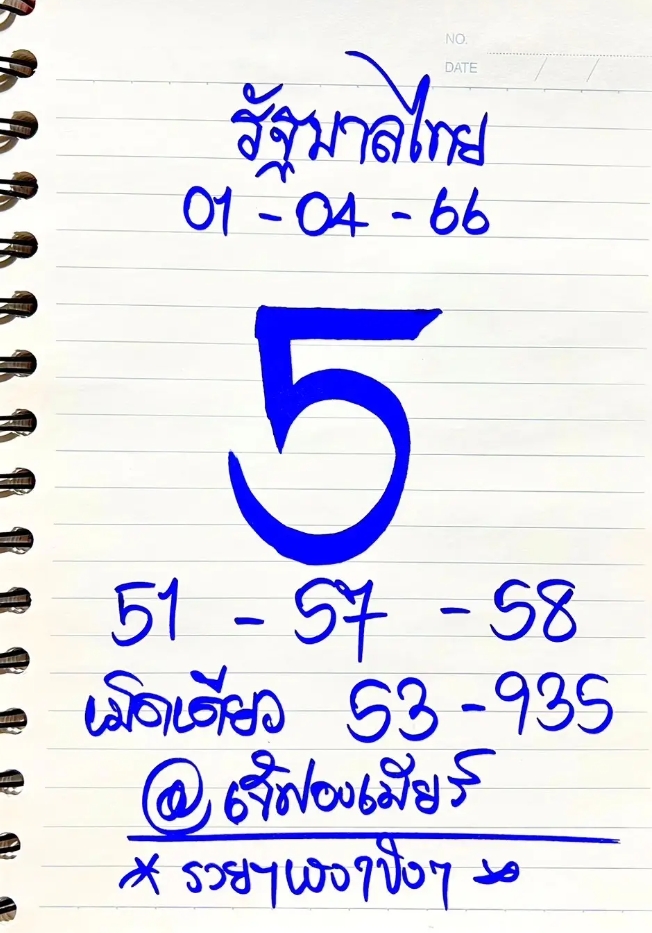 NO.
DATE / /
รัฐบาลไทย
01 - 04 - 66
5
51 - 57 - 58
เม็ดเดียว 53 - 935
@เจ๊ฟองเบียร์
* รวยๆเฮงๆปังๆ